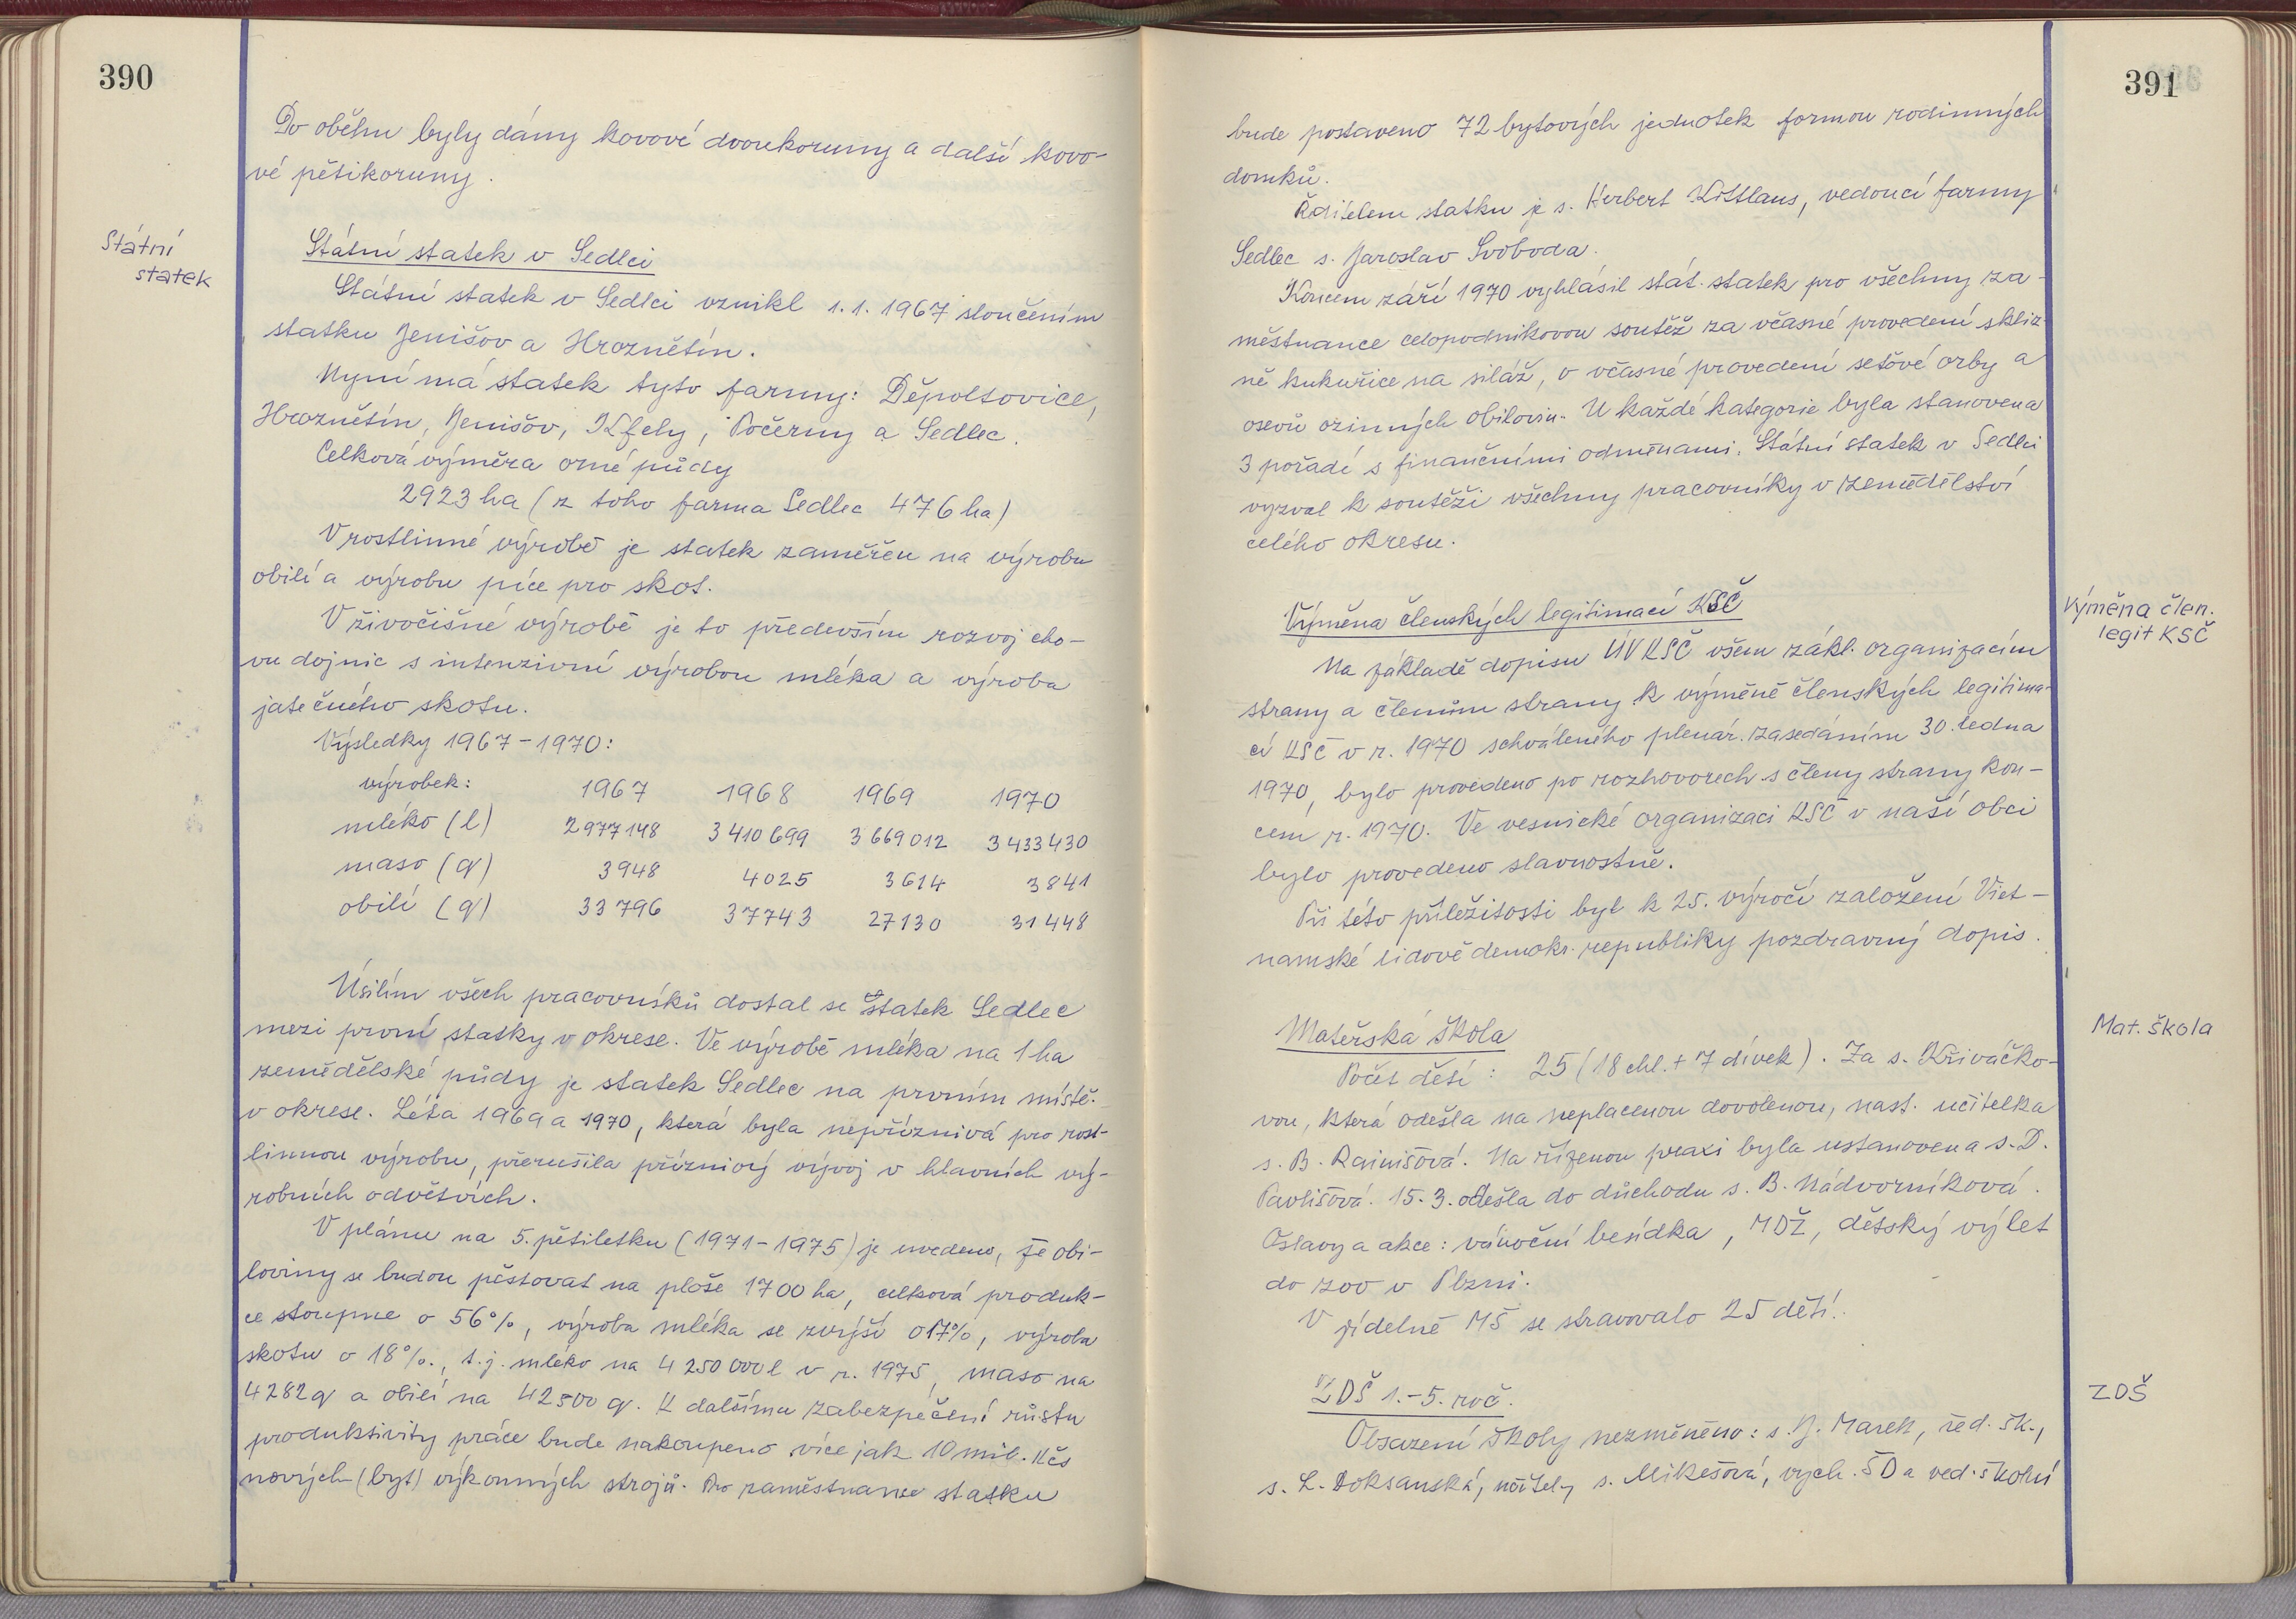 390
Do oběhu byly dány kovové dvoukoruny a další kovo-
vé pětikoruny.
Státní
statek
Státní statek v Sedlci
Státní statek v Sedlci vznikl 1.1.1967 sloučením
statku Jenišov a Hroznětín.
Nyní má statek tyto farmy: Děpoltovice,
Hroznětín, Jenišov, Kfely, Počerny a Sedlec.
Celková výměra orné půdy
2923 ha (z toho farma Sedlec 476 ha)
V rostlinné výrobě je statek zaměřen na výrobu
obilí a výrobu píce pro skot.
V živočišné výrobě je to především rozvoj cho-
vu dojnic s intenzivní výrobou mléka a výroba
jatečného skotu.
Výsledky 1967-1970:
výrobek: 1967 1968 1969 1970
mléko (l) 2977148 3410699 3669012 3433430
maso (q) 3948 4025 3614 3841
obilí (q) 33796 37743 27130 31448
Úsilím všech pracovníků dostal se statek Sedlec
mezi první statky v okrese. Ve výrobě mléka na 1 ha
zemědělské půdy je statek Sedlec na prvním místě
v okrese. Léta 1969 a 1970, která byla nepříznivá pro rost-
linnou výrobu, přerušila příznivý vývoj v hlavních vý-
robních odvětvích.
V plánu na 5. pětiletku (1971-1975) je uvedeno, že obi-
loviny se budou pěstovat na ploše 1700 ha, celková produk-
ce stoupne o 56%, výroba mléka se zvýší o 17%, výroba
skotu o 18%., t.j. mléko na 4 250 000 l v r. 1975, maso na
4282 q a obilí na 42500 q. K dalšímu zabezpečení růstu
produktivity práce bude nakoupeno více jak 10 mil. Kčs
nových (byt) výkonných strojů. Pro zaměstnance statku
391
bude postaveno 72 bytových jednotek formou rodinných
domků.
Ředitelem statku je s. Herbert Kittlaus, vedoucí farmy
Sedlec s. Jaroslav Svoboda.
Koncem září 1970 vyhlásil stát. statek pro všechny za-
městnance celopodnikovou soutěž za včasné provedení skliz-
ně kukuřice na siláž, o včasné provedení seťové orby a
osevů ozimných obilovin. U každé kategorie byla stanovena
3 pořadí s finančními odměnami. Státní statek v Sedlci
vyzval k soutěži všechny pracovníky v zemědělství
celého okresu.
Výměna členských legitimací KSČ
Výměna člen.
legit KSČ
Na základě dopisu ÚV KSČ všem zákl. organizacím
strany a členům strany k výměně členských legitima-
cí KSČ v r. 1970 schváleného plenár. zasedáním 30. ledna
1970, bylo provedeno po rozhovorech s členy strany kon-
cem r. 1970. Ve vesnické organizaci KSČ v naší obci
bylo provedeno slavnostně.
Při této příležitosti byl k 25. výročí založení Viet-
namské lidově demokr. republiky pozdravný dopis.
Mateřská škola
Mat. škola
Počet dětí: 25 (18 chl. + 7 dívek). Za s. Křiváčko-
vou, která odešla na neplacenou dovolenou, nast. učitelka
s. B. Rainišová. Na řízenou praxi byla ustanovena s. D.
Pavlišová. 15.3. odešla do důchodu s. B. Nádvorníková.
Oslavy a akce: vánoční besídka, MDŽ, dětský výlet
do zoo v Plzni.
V jídelně MŠ se stravovalo 25 dětí.
ZDŠ 1.-5. roč.
ZDŠ
Obsazení školy nezměněno: s. J. Marek, řed. šk.,
s. L. Doksanská, učitel, s. Mikešová, vych. ŠD a ved. školní